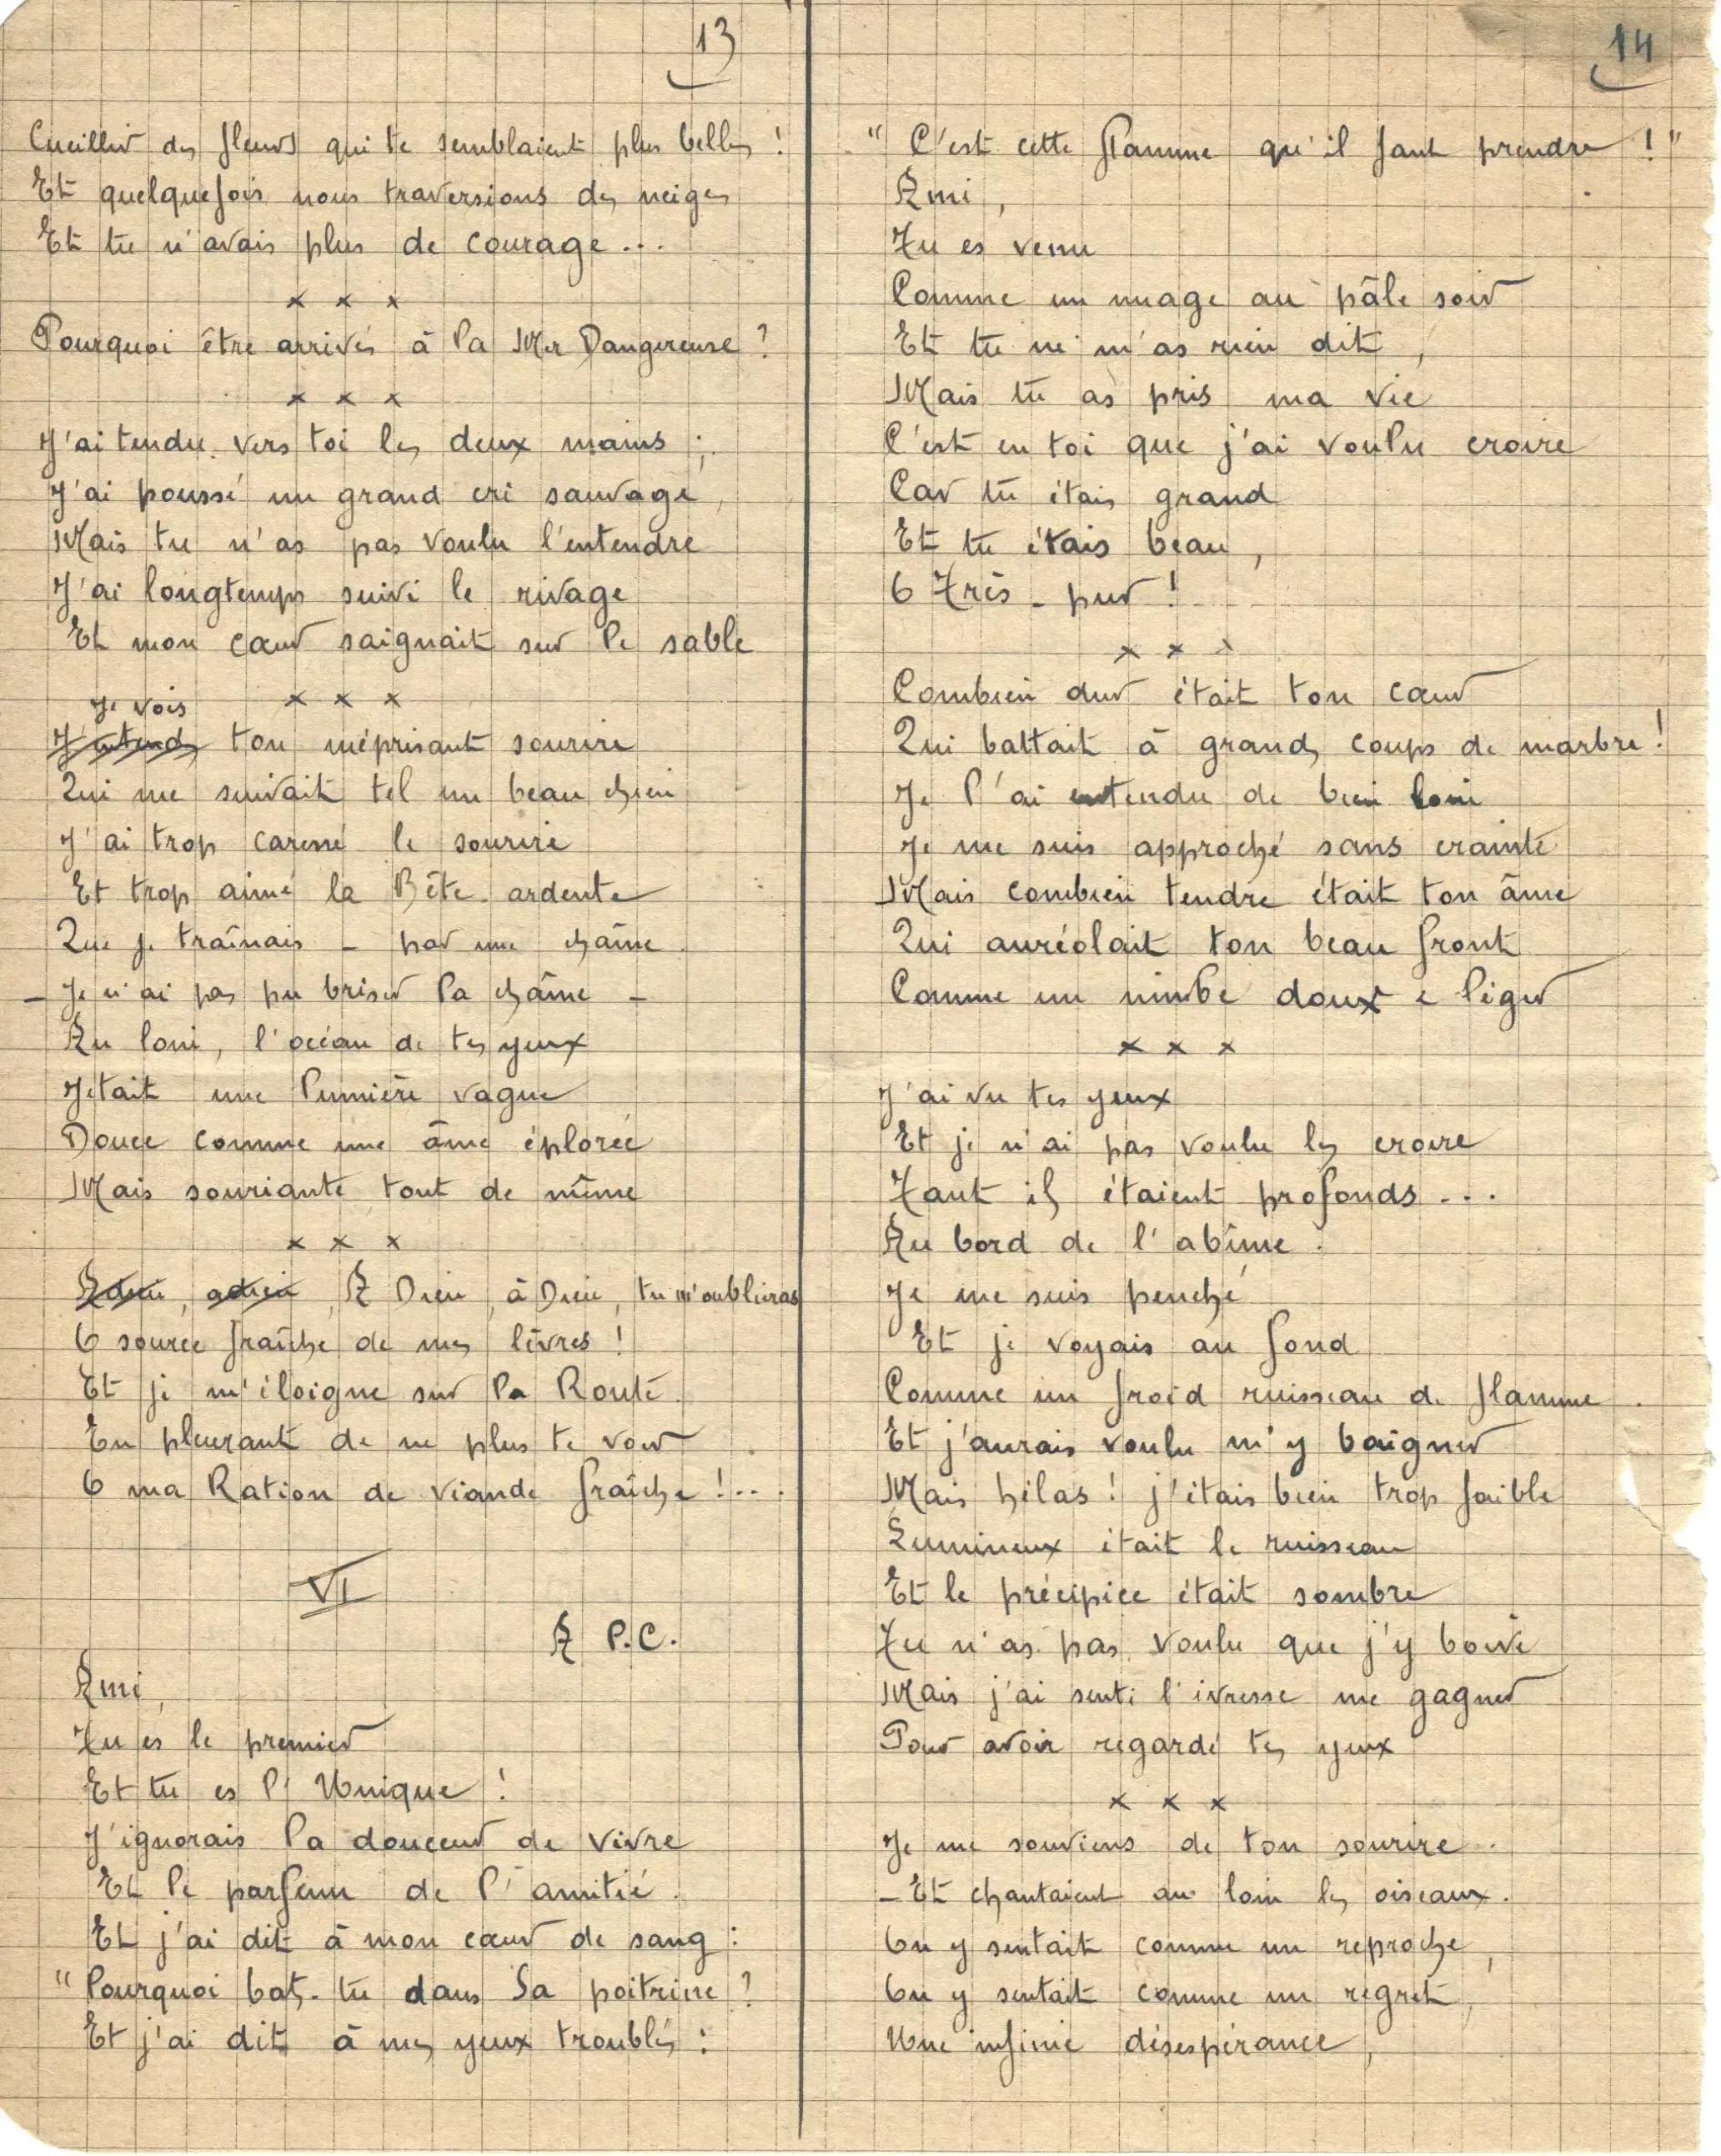 13
Cueillir des fleurs qui te semblaient plus belles !
Et quelquefois nous traversions des neiges
Et tu n'avais plus de courage...
x x x
Pourquoi être arrivés à la Mer Dangereuse ?
x x x
J'ai tendu vers toi les deux mains ;
J'ai poussé un grand cri sauvage,
Mais tu n'as pas voulu l'entendre
J'ai longtemps suivi le rivage
Et mon cœur saignait sur le sable
x x x
Je vois
J'entends ton méprisant sourire
Qui me suivait tel un beau chien
J'ai trop caressé le sourire
Et trop aimé la Bête ardente
Que je traînais - par une chaîne.
- Je n'ai pas pu briser la chaîne -
Au loin, l'océan de tes yeux
Jetait une lumière vague
Douce comme une âme éplorée
Mais souriante tout de même
x x x
Adieu, adieu, A Dieu, à Dieu, tu m'oublieras
O source fraîche de mes lèvres !
Et je m'éloigne sur la Route.
En pleurant de ne plus te voir
O ma Ration de viande fraîche !...
VI
A P.C.
Ami,
Tu es le premier
Et tu es l'Unique !
J'ignorais la douceur de vivre
Et le parfum de l'amitié.
Et j'ai dit à mon cœur de sang :
"Pourquoi bats-tu dans sa poitrine ?
Et j'ai dit à mes yeux troublés :
14
"C'est cette flamme qu'il faut prendre !"
Ami,
Tu es venu
Comme un nuage au pâle soir
Et tu ne m'as rien dit,
Mais tu as pris ma vie
C'est en toi que j'ai voulu croire
Car tu étais grand
Et tu étais beau,
O Très-pur !
x x x
Combien dur était ton cœur
Qui battait à grands coups de marbre !
Je l'ai entendu de bien loin
Je me suis approché sans crainte
Mais combien tendre était ton âme
Qui auréolait ton beau front
Comme un nimbe doux e léger
x x x
J'ai vu tes yeux
Et je n'ai pas voulu les croire
Tant ils étaient profonds...
Au bord de l'abîme.
Je me suis penché
Et je voyais au fond
Comme un froid ruisseau de flamme.
Et j'aurais voulu m'y baigner
Mais hélas ! j'étais bien trop faible
Lumineux était le ruisseau
Et le précipice était sombre
Tu n'as pas voulu que j'y boive
Mais j'ai senti l'ivresse me gagner
Pour avoir regardé tes yeux
x x x
Je me souviens de ton sourire.
- Et chantaient au loin les oiseaux.
On y sentait comme un reproche,
On y sentait comme un regret,
Une infinie désespérance,